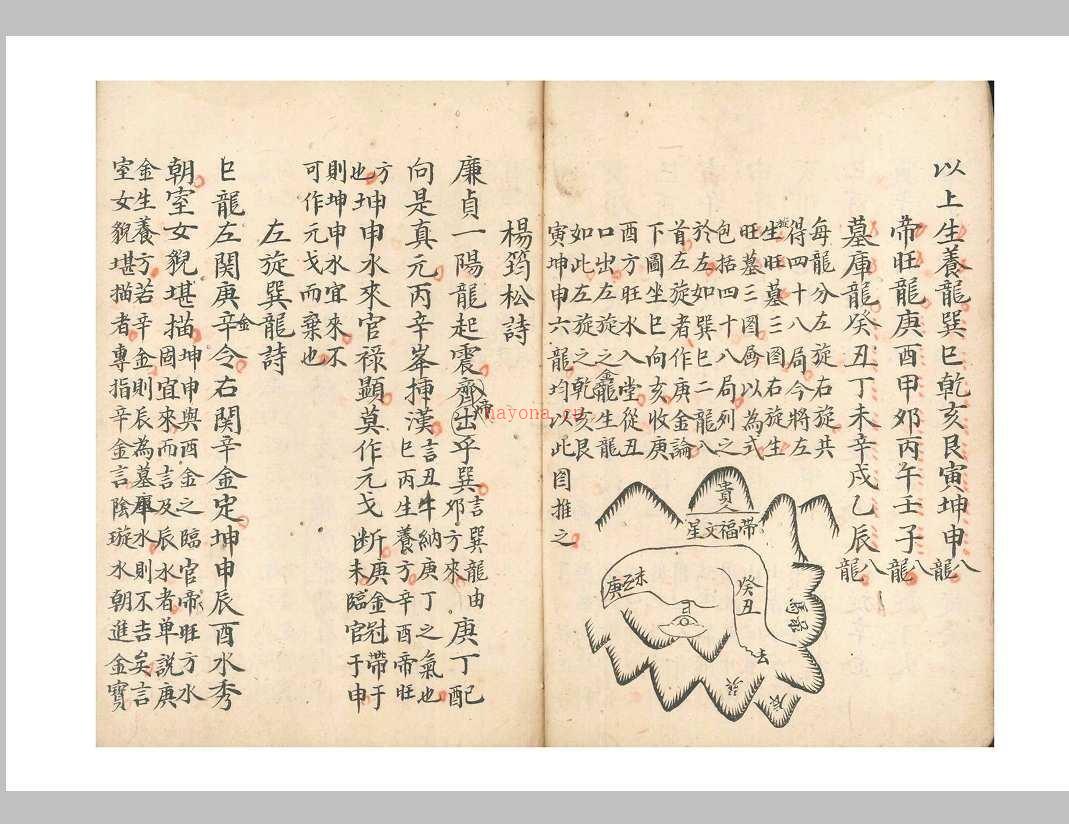 以上生養龍巽巳乾亥艮寅坤申八龍
帝旺龍庚酉甲卯丙午壬子八龍
墓庫龍癸丑丁未辛戌乙辰八龍
每龍分左旋右旋共
得四十八局今將左
生旺墓三图右旋生
旺墓三图畫以為式
包括四十八局列之
於左如巽巳二龍八
首左旋者作庚金論
下圖坐巳向亥收庚
酉方旺水入堂從丑
口出左旋之金龍生龍
如此左旋之乾亥艮
寅坤申六龍均以此图推之
貴人
帶福文星
庚
未
癸丑
去
辰
hayona.cn
楊筠松詩
廉貞一陽龍起震齊出乎巽言巽龍由卯方來庚丁配
向是真元丙辛峯揷漢言丑牛納庚丁之氣也巳丙生養方辛酉帝旺
方也坤申水來官祿顯莫作元戈断庚金冠帶于未臨官于申
則坤申水宜來不
可作元戈而棄也
左旋巽龍詩
巳龍左関庚辛金令右関辛金定坤申辰酉水秀
朝室女貌堪描坤申與酉金之臨官帝旺方水固宜來而言及辰水者单説庚
金生養方若辛金則辰為墓庫水則不吉矣言
室女貌堪描者專指辛金言陰璇水朝進金寶